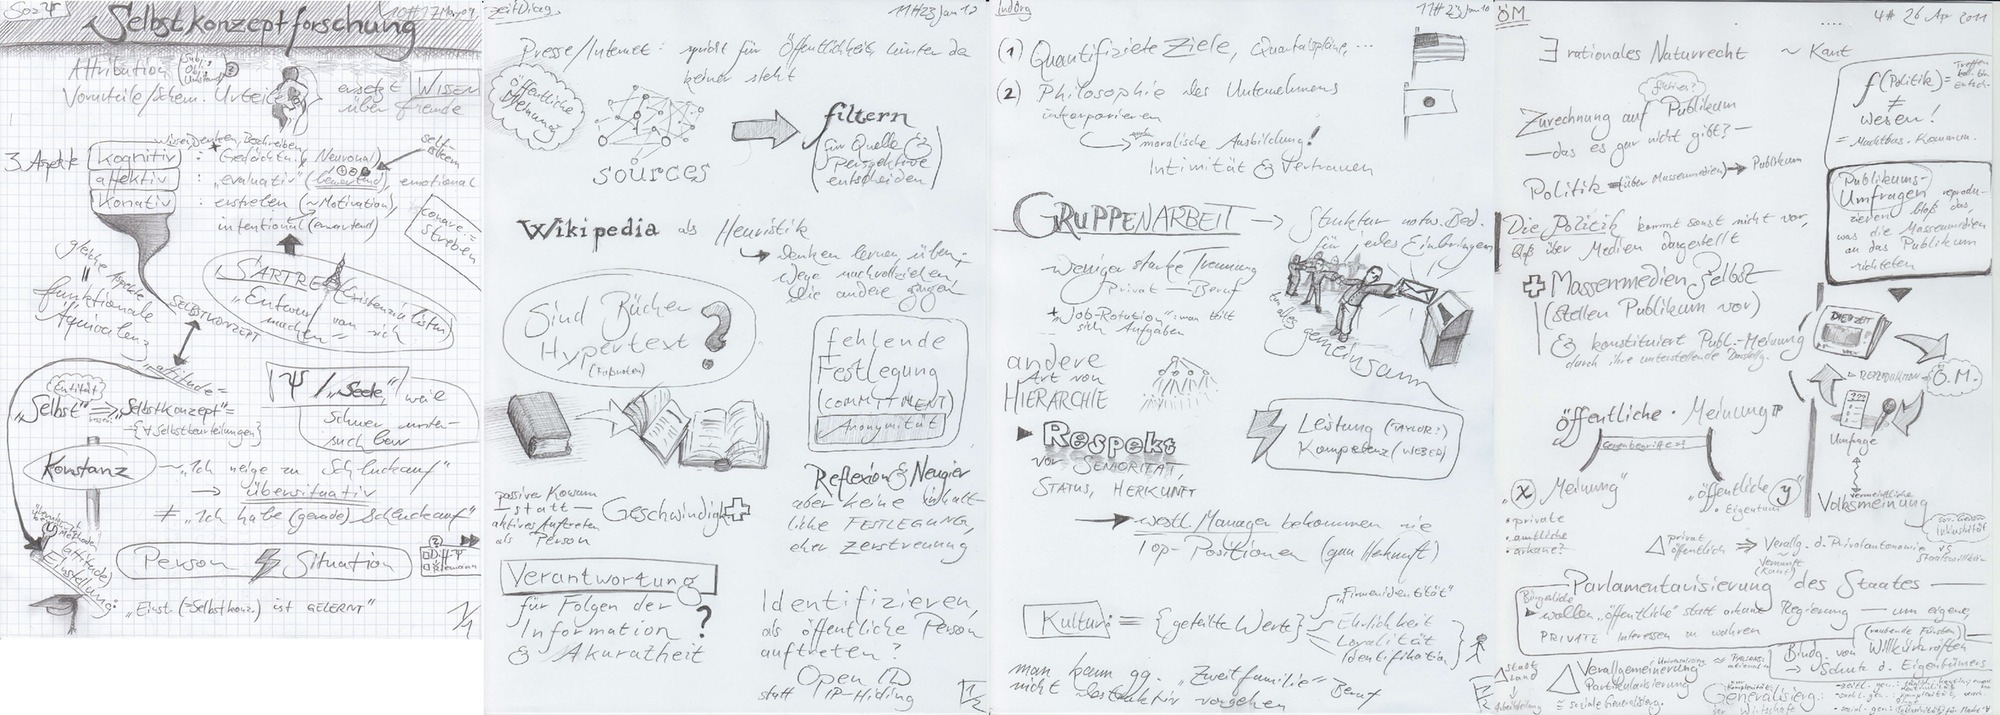 SozΨ
Selbstkonzeptforschung
Attribution
Vorurteile/Schem. Urteile
ersetzt Wissen
über fremde
3 Aspekte
kognitiv : Gedächtnis, Neuronal
affektiv : "evaluativ" (bewertend), emotional
konativ : erstreben (~Motivation),
intentional (erwartend)
conare =
streben
SARTRE
"Entwurf von sich
machen"
funktionale
Äquivalenz
SELBSTKONZEPT
"attitude"
Entität
"Selbst" "Selbstkonzept" =
= {∀ Selbstbeurteilungen}
Ψ / "Seele," weil
schwer unter-
suchbar
Konstanz ~ "Ich neige zu Schluckauf"
→ übersituativ
≠ "Ich habe (gerade) Schluckauf"
Person Situation
Einstellung:
"Einst. (=Selbstkonz.) ist GELERNT"
1/1
11#23 Jan 10
Presse/Internet: spricht für Öffentlichkeit, hinter da
keiner steht
Öffentliche
Meinung
sources
filtern
für Quelle &
Perspektive
entscheiden
Wikipedia als Heuristik
Denken lernen, üben,
Wege nachvollziehen
die andere gingen
Sind Bücher
Hypertext?
(Fußnoten)
fehlende
Festlegung
(COMMITTMENT)
Anonymität
Reflexion & Neugier
aber keine inhalt-
liche FESTLEGUNG,
eher Zerstreuung
passiver Konsum
— statt —
aktives Auftreten
als Person
Geschwindigk +
Verantwortung
für Folgen der
Information ?
& Akuratheit
Identifizieren,
als öffentliche Person
auftreten?
Open ID
statt IP-Hiding
1/2
IndOrg
11#23 Jan 10
(1) Quantifizierte Ziele, Quartalspläne, ...
(2) Philosophie des Unternehmens
inkorporieren
moralische Ausbildung!
Intimität & Vertrauen
GRUPPENARBEIT → Struktur notw. Bed.
für jedes Einbringen
weniger starke Trennung
Privat — Beruf
+ "Job-Rotation": man teilt
sich Aufgaben
alles gemeinsam
andere
Art von
HIERARCHIE
Respekt
vor SENIORITÄT,
STATUS, HERKUNFT
Leistung (TAYLOR!)
Kompetenz (WEBER)
westl. Manager bekommen nie
Top-Positionen (qua Herkunft)
Kultur: = {geteilte Werte}
"Firmenidentität"
Ehrlichkeit
Loyalität
Identifikation
man kann gg. "Zweitfamilie" Beruf
nicht destruktiv vorgehen
ÖM
4# 26 Apr 2011
∃ rationales Naturrecht ~ Kant
Zurechnung auf Publikum
— das es gar nicht gibt? —
f(Politik) =
≠
Wesen!
= Machtbas. Kommun.
Politik (über Massenmedien) → Publikum
Die Politik kommt sonst nicht vor,
bloß über Medien dargestellt
Publikums-
Umfragen reprodu-
zieren bloß das,
was die Massenmedien
an das Publikum
richteten
+ Massenmedien selbst
(stellen Publikum vor)
& konstituiert Publ.-Meinung
durch ihre unterstellende Darstellg.
DIE ZEIT
REPRODUKTION
Ö.M.
Umfrage
öffentliche · Meinung
Gegenbegriffe=?
"x Meinung"
• private
• amtliche
• arkane?
"öffentliche y"
• Eigentum
vermeintliche
Volksmeinung
privat
öffentlich
⇒ Verallg. d. Privatautonomie
Vernunft
(Kant)
Parlamentarisierung des Staates
Bürgerliche
wollen "öffentliche" statt arkane Regierung — um eigene,
PRIVATE Interessen zu wahren
(raubende Fürsten)
Bindg. von Willkürkräften
→ Schutz d. Eigentümers
Stadt
Land
Arbeitsteilung
Verallgemeinerung
Partikularisierung
≅ soziale Generalisierg.
Generalisierg.:
der Wirtschaft